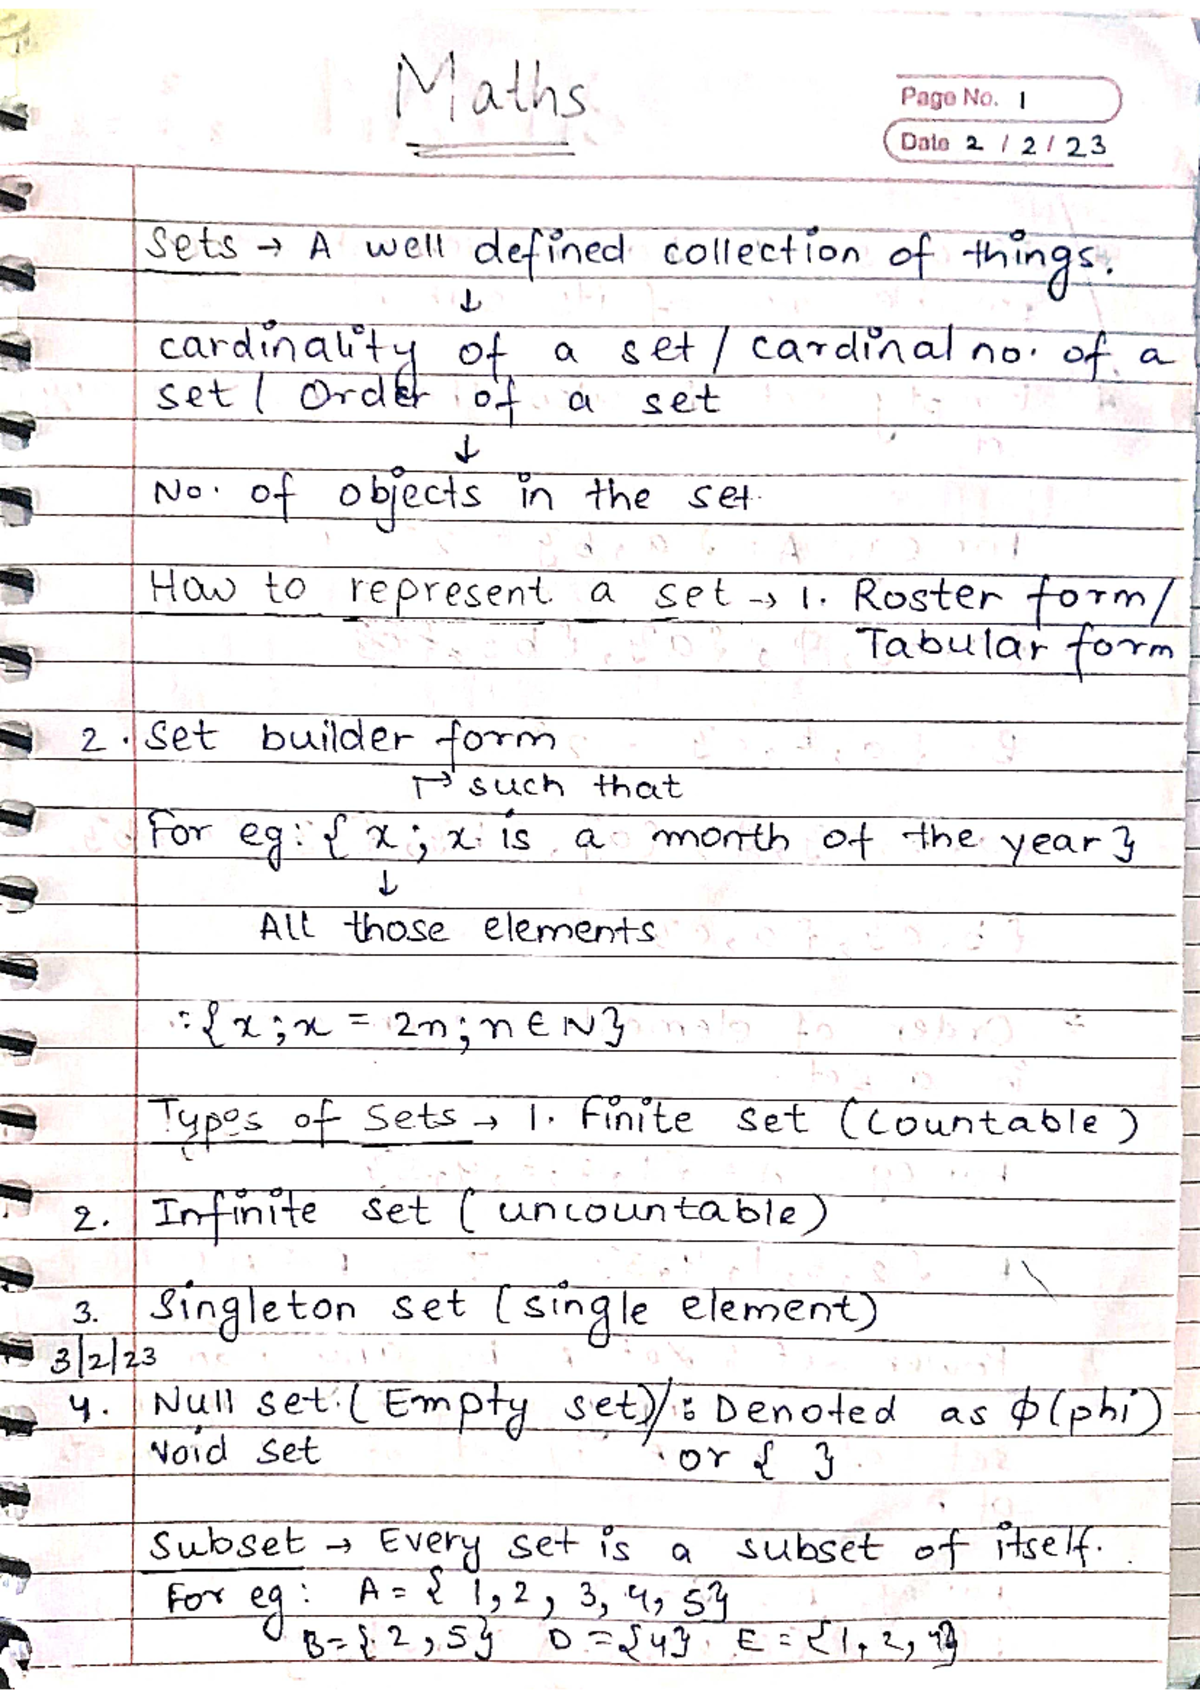 Maths
Page No. 1
Date 2 / 2 / 23
Sets → A well defined collection of things.
↓
cardinality of a set / cardinal no. of a
set / Order of a set
↓
No. of objects in the set.
How to represent a set → 1. Roster form /
Tabular form
2. Set builder form
↱ such that
For eg: { x ; x is a month of the year }
↓
All those elements
∴ { x ; x = 2n ; n ∈ N }
Types of Sets → 1. Finite set (Countable)
2. Infinite set (uncountable)
3. Singleton set (single element)
3/2/23
4. Null set (Empty set)/ : Denoted as ϕ (phi)
Void set or { }
Subset → Every set is a subset of itself.
For eg: A = { 1, 2, 3, 4, 5}
B = { 2, 5} D = {4} E = {1, 2, 4}